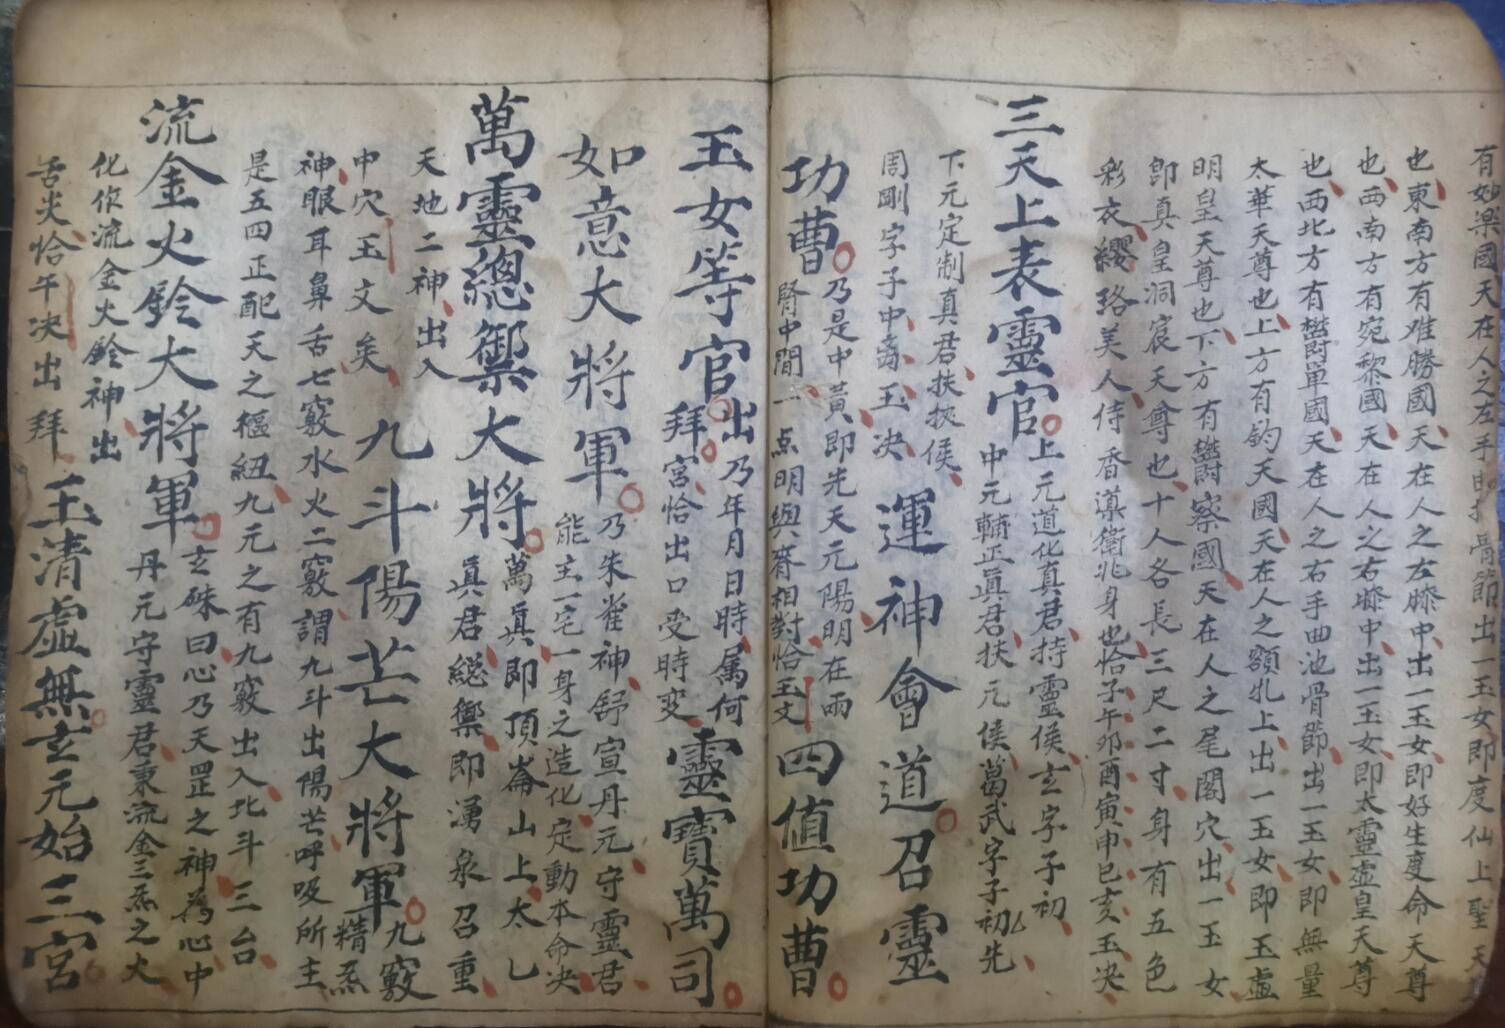 有妙樂國天在人之左手曲池骨節出一玉女即度仙上聖天
也東南方有难勝國天在人之左膝中出一玉女即好生度命天尊
也西南方有宛黎國天在人之右膝中出一玉女即太靈虚皇天尊
也西北方有欝單國天在人之右手曲池骨節出一玉女即無量
太華天尊也上方有鈞天國天在人之額頂上出一玉女即玉虚
明皇天尊也下方有欝察國天在人之尾閭穴出一玉女
即真皇洞宸天尊也十人各長三尺二寸身有五色
彩衣纓珞美人侍香導衛兆身也恰子午夘酉寅申巳亥玉决
三天上表靈官上元道化真君持靈侯玄字子初
中元輔正真君扶元侯葛武字子初先
下元定制真君扶㧞侯
周剛字子中 玉决 運神會道召靈
功曹乃是中黃即先天元陽明在兩
腎中間一点明與臍相對恰玉文 四值功曹
玉女等官出乃年月日時属何
拜宮恰出口受時变 靈寶萬司
如意大將軍乃朱雀神舒宣丹元守靈君
能主一宅一身之造化定動本命决
萬靈總禦大將萬真即頂崙山上太乙
真君総禦即湧泉召重
天地二神出入 九斗陽芒大將軍九竅
中穴玉文矣 精炁
神眼耳鼻舌七竅水火二竅謂九斗出陽芒呼吸所主
是五四正配天之樞紐九元之有九竅出入北斗三台
流金火鈴大將軍玄硃曰心乃天罡之神為心中
丹元守靈君秉流金三炁之火
化作流金火鈴神出
舌尖恰午决出拜 玉清虚無玄元始三宮